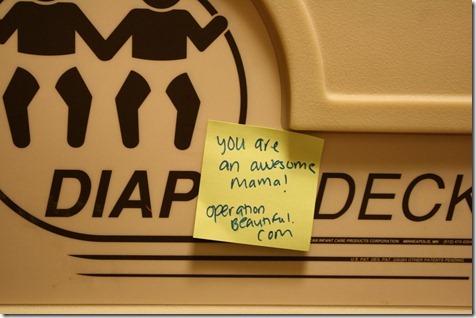 you are
an awesome
mama!
operation
Beautiful.
com
DIAP DECK
INFANT CARE PRODUCTS CORPORATION MINNEAPOLIS, MN
U.S. PAT. DES. PAT. OTHER PATENTS PENDING